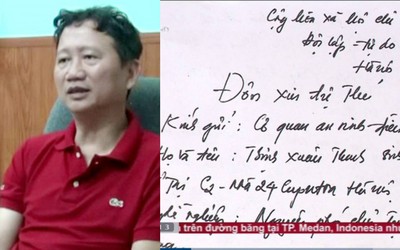 Cộng hòa xã hội chủ
Độc lập - Tự do
Hà Nội
Đơn xin tự thú
Kính gửi: Cơ quan an ninh điều
Họ và tên: Trịnh Xuân Thanh sinh
C2 - nhà 24
nghề nghiệp: Nguyên phó chủ
3 n trên đường băng tại TP. Medan, Indonesia như